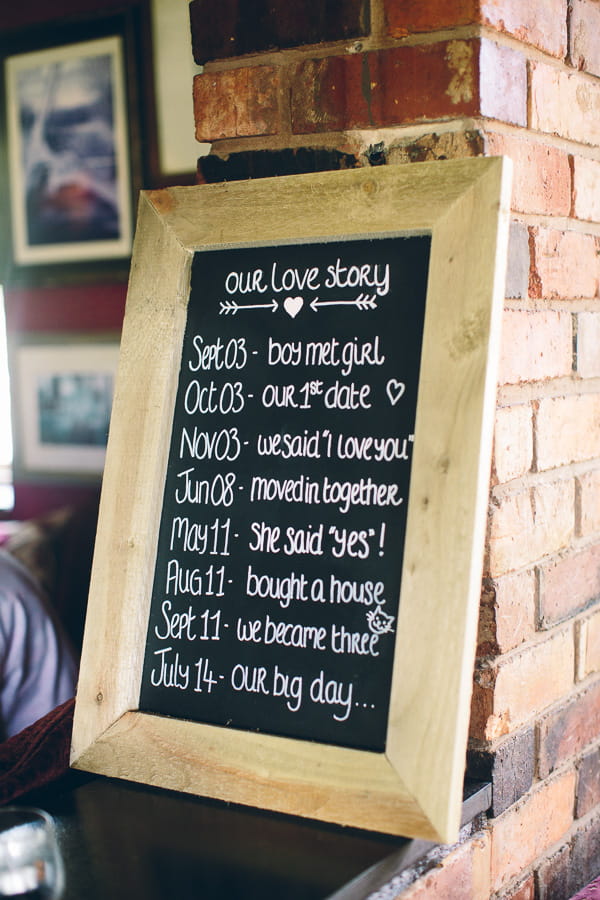 our love story
Sept 03 - boy met girl
Oct 03 - our 1st date
Nov 03 - we said "I love you"
Jun 08 - moved in together
May 11 - She said "yes"!
Aug 11 - bought a house
Sept 11 - we became three
July 14 - our big day...